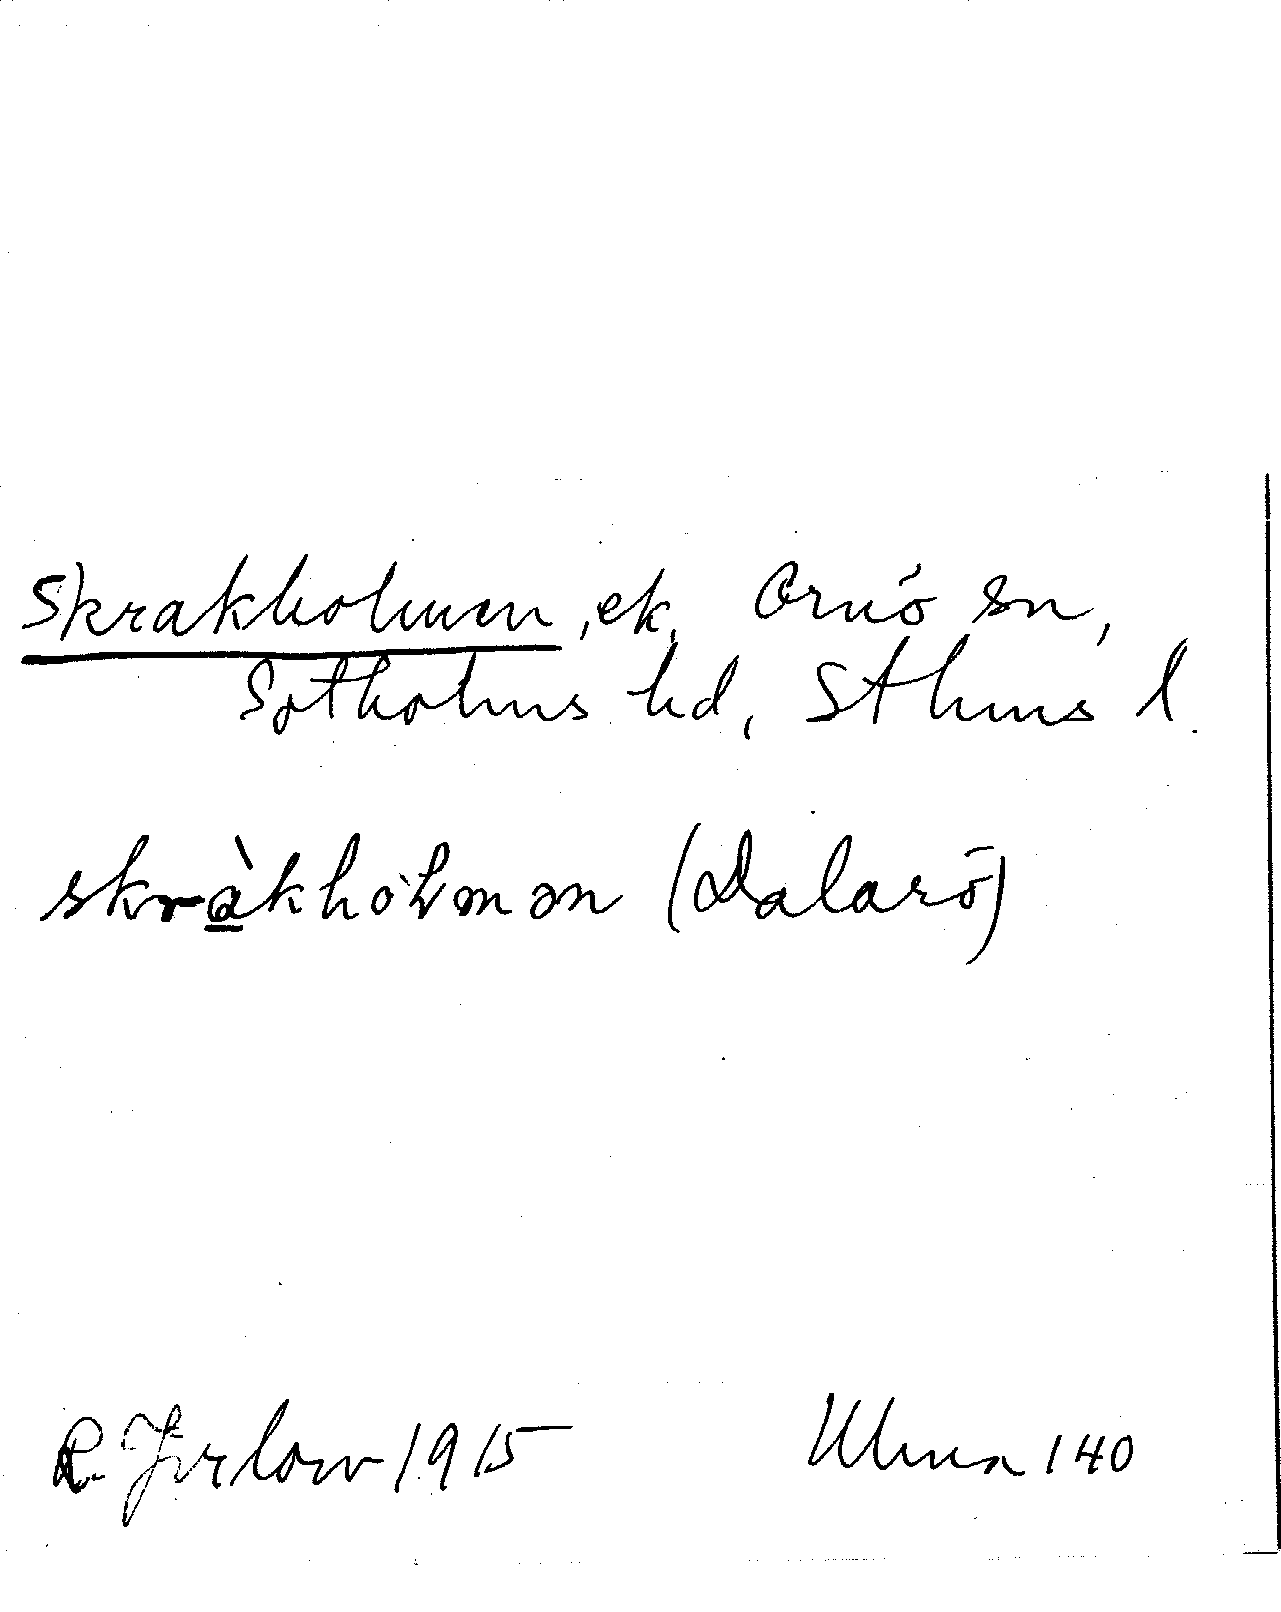 Skrakholmen, ek. Ornö sn,
Sotholms hd, Sthms l.
skràkhòlmən (Dalarö)
R. Jirlow 1915 Ulma 140